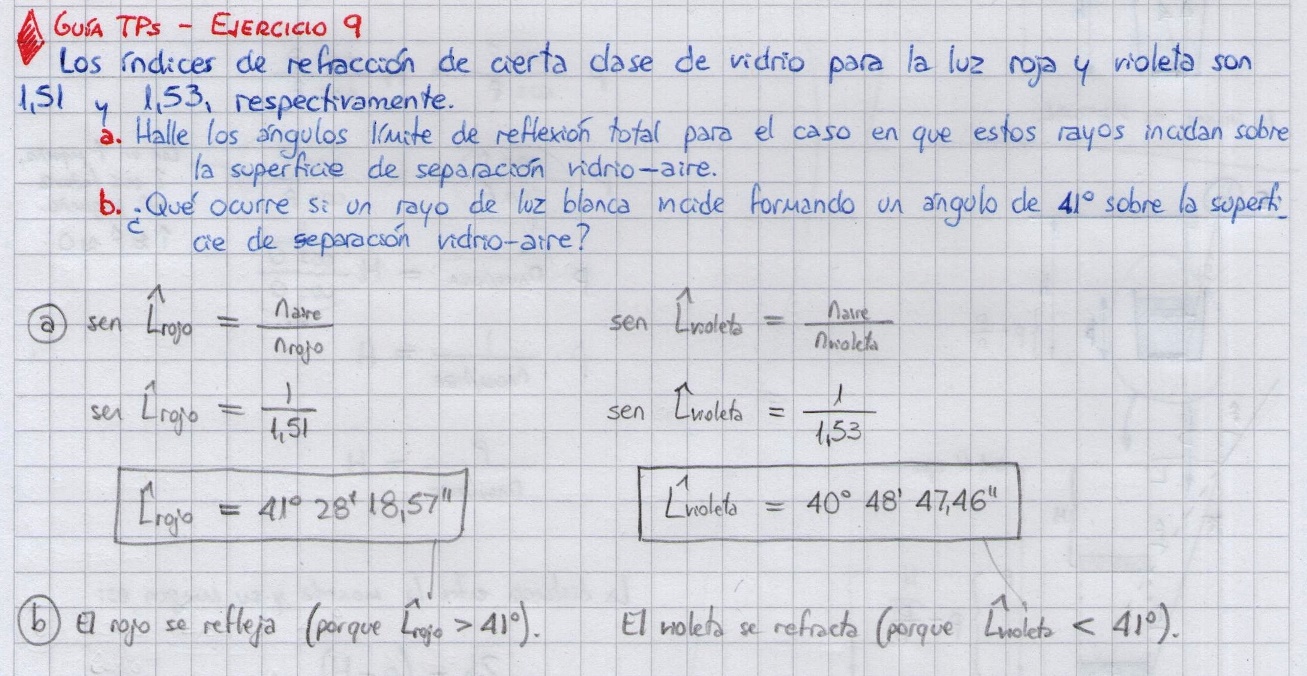 GUÍA TPs - EJERCICIO 9
Los índices de refracción de cierta clase de vidrio para la luz roja y violeta son
1,51 y 1,53, respectivamente.
a. Halle los ángulos límite de reflexión total para el caso en que estos rayos incidan sobre
la superficie de separación vidrio-aire.
b. ¿Qué ocurre si un rayo de luz blanca incide formando un ángulo de 41° sobre la superfi-
cie de separación vidrio-aire?
ⓐ sen L̂rojo = naire / nrojo sen L̂violeta = naire / nvioleta
sen L̂rojo = 1 / 1,51 sen L̂violeta = 1 / 1,53
L̂rojo = 41° 28' 18,57" L̂violeta = 40° 48' 47,46"
ⓑ El rojo se refleja (porque L̂rojo > 41°). El violeta se refracta (porque L̂violeta < 41°).